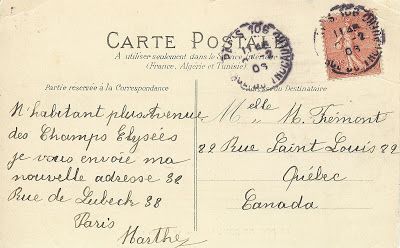 CARTE POSTALE
A utiliser seulement dans le Service Intérieur
(France, Algérie et Tunisie)
Partie réservée à la Correspondance
Destinataire
N'habitant plus Avenue
des Champs Elysées
je vous envoie ma
nouvelle adresse 38
Rue de Lubeck 38
Paris
Marthe
Melle M. Frémont
22 Rue Saint Louis 22
Québec
Canada
PARIS 106